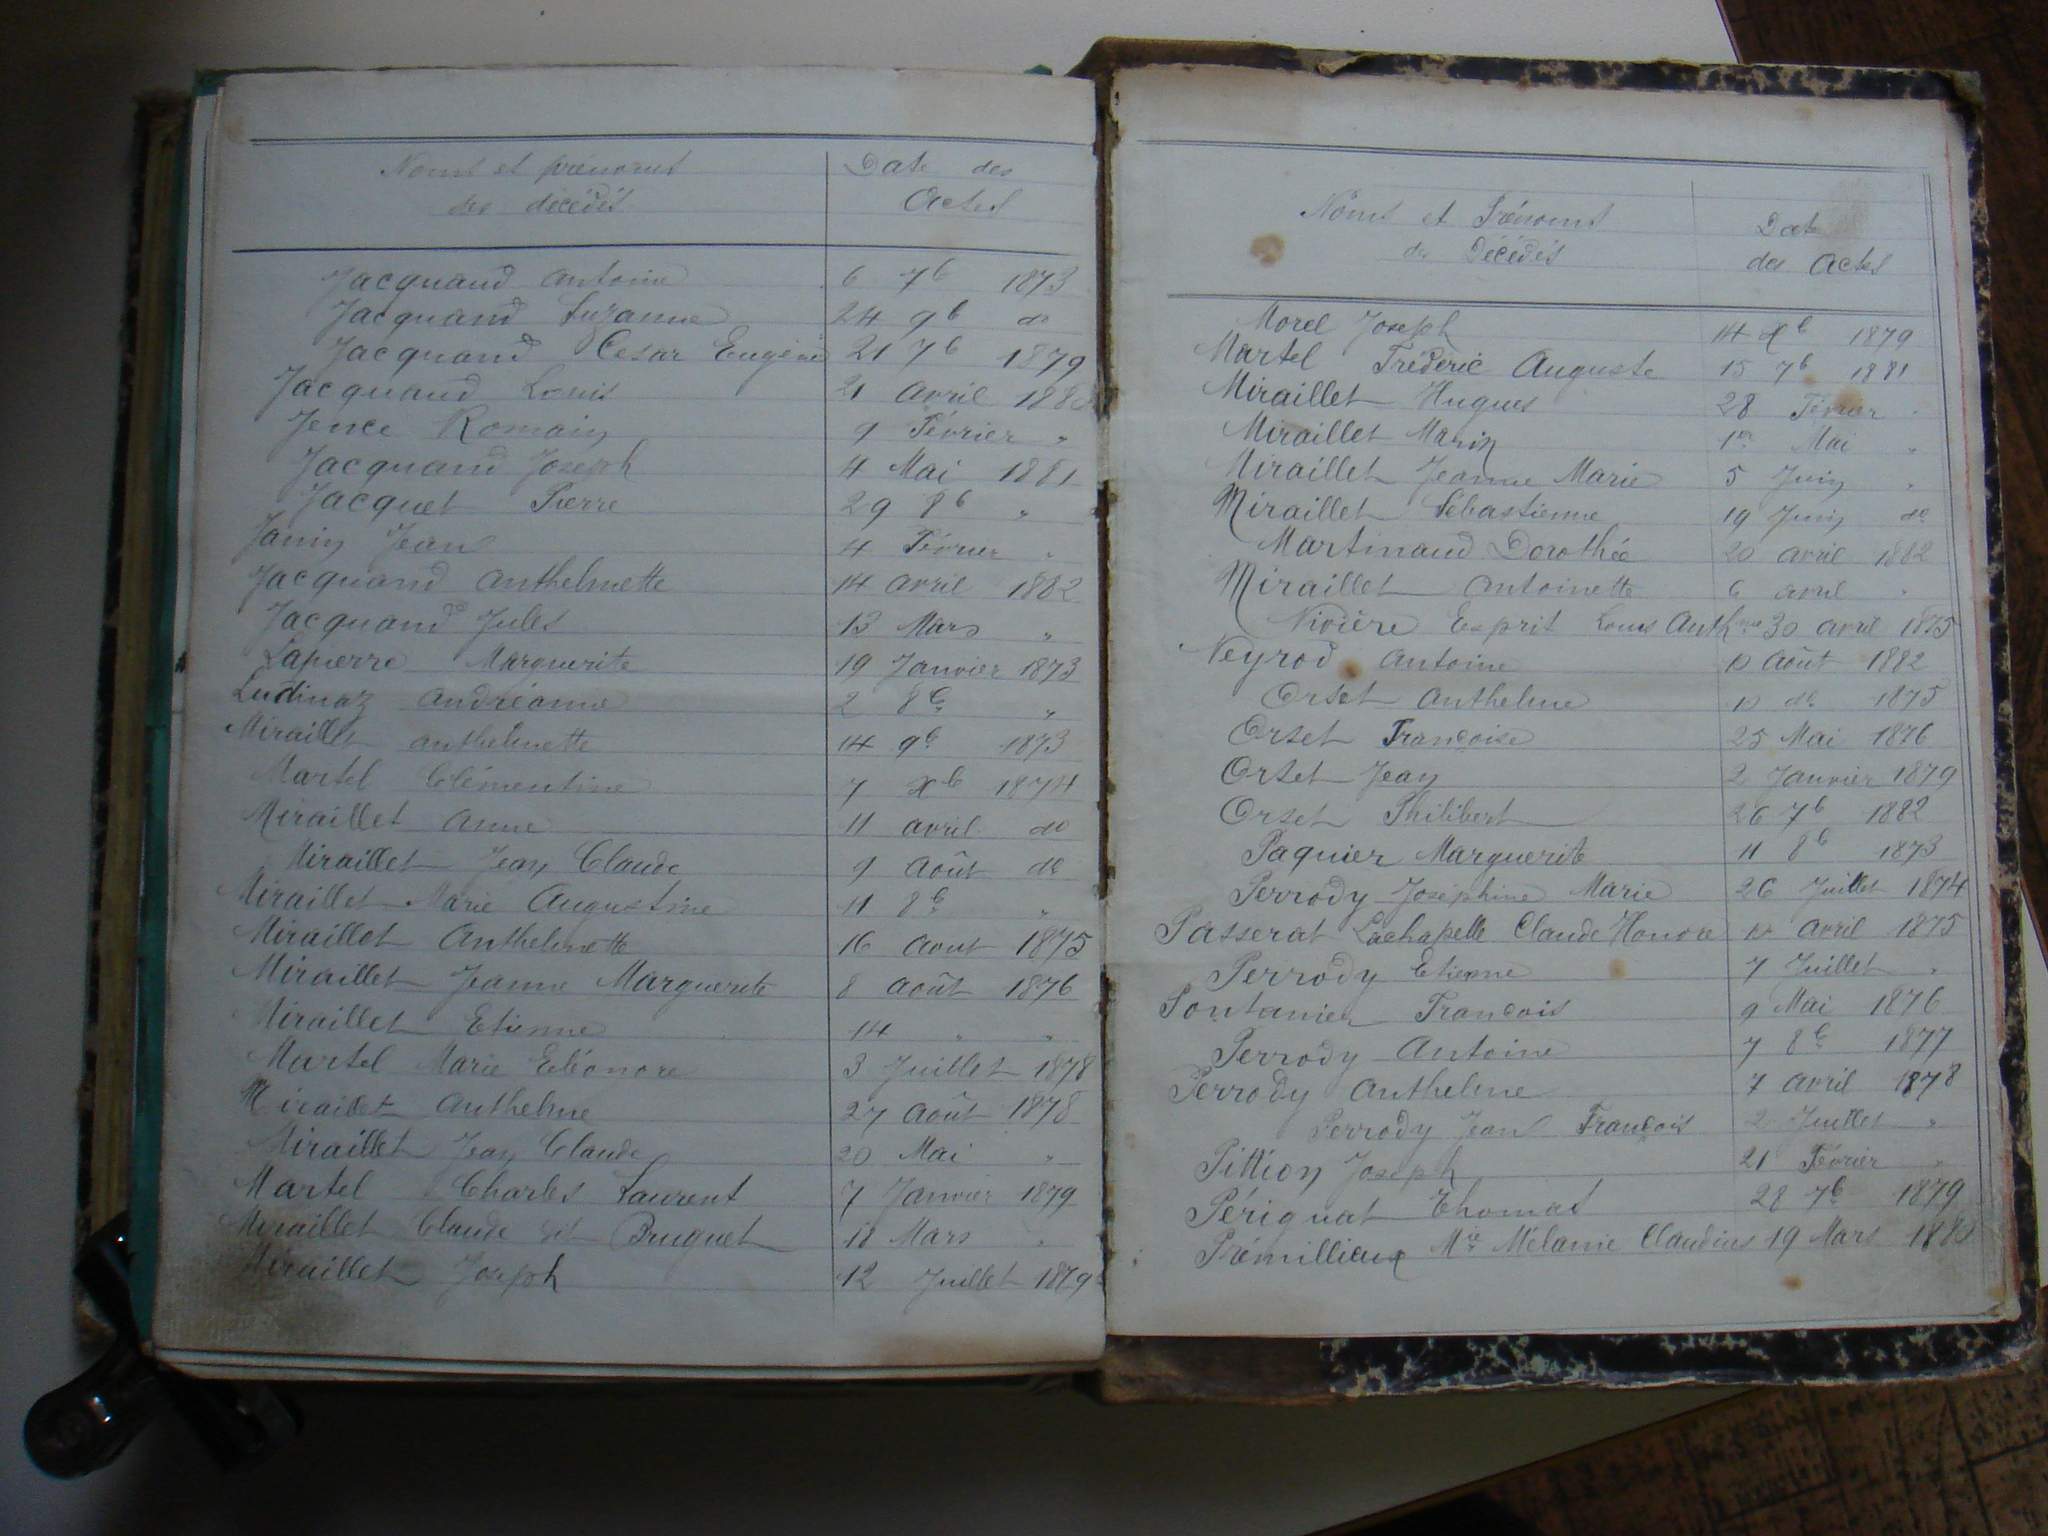 Noms et prénoms Date des
des décédés Actes
Jacquand Antoine 6 7b 1873
Jacquand Suzanne 24 9b do
Jacquand Cesar Eugène 21 7b 1879
Jacquand Louis 21 avril 1880
Jence Romain 9 Février "
Jacquand Joseph 4 Mai 1881
Jacquet Pierre 29 8b "
Janin Jean 4 Février "
Jacquand Anthelmette 14 avril 1882
Jacquand Jules 13 Mars "
Lapierre Marguerite 19 Janvier 1873
Ludinaz Andréanne 2 8b "
Miraillet Anthelmette 14 9b 1873
Martel Clémentine 7 xb 1874
Miraillet Anne 11 avril do
Miraillet Jean Claude 9 Août do
Miraillet Marie Augustine 11 8b "
Miraillet Anthelmette 16 Aout 1875
Miraillet Jeanne Marguerite 8 Août 1876
Miraillet Etienne 14 " "
Martel Marie Eléonore 3 Juillet 1878
Miraillet Anthelme 27 Août 1878
Miraillet Jean Claude 20 Mai "
Martel Charles Laurent 7 Janvier 1879
Miraillet Claude dit Bruquet 18 Mars "
Miraillet Joseph 12 Juillet 1879
Noms et Prénoms Date
des Décédés des Actes
Morel Joseph 14 xb 1879
Martel Fréderic Auguste 15 7b 1881
Miraillet Hugues 28 Février "
Miraillet Marin 1er Mai "
Miraillet Jeanne Marie 5 Juin "
Miraillet Sébastienne 19 Juin do
Martinand Dorothée 20 avril 1882
Miraillet Antoinette 6 avril "
Nivière Esprit Louis Anthme 30 avril 1875
Neyrod Antoine 10 Août 1882
Orset Anthelme 10 do 1875
Orset Françoise 25 Mai 1876
Orset Jean 2 Janvier 1879
Orset Philibert 26 7b 1882
Paquier Marguerite 11 8b 1873
Perrody Joséphine Marie 26 Juillet 1874
Passerat Lachapelle Claude Honore 10 Avril 1875
Perrody Etienne 7 Juillet "
Pontanier François 9 Mai 1876
Perrody Antoine 7 8b 1877
Perrody Anthelme 7 avril 1878
Perrody Jean François 2 Juillet "
Pittion Joseph 21 Février "
Pérignat Thomas 28 7b 1879
Prémillieux Mie Mélanie Claudius 19 Mars 1880